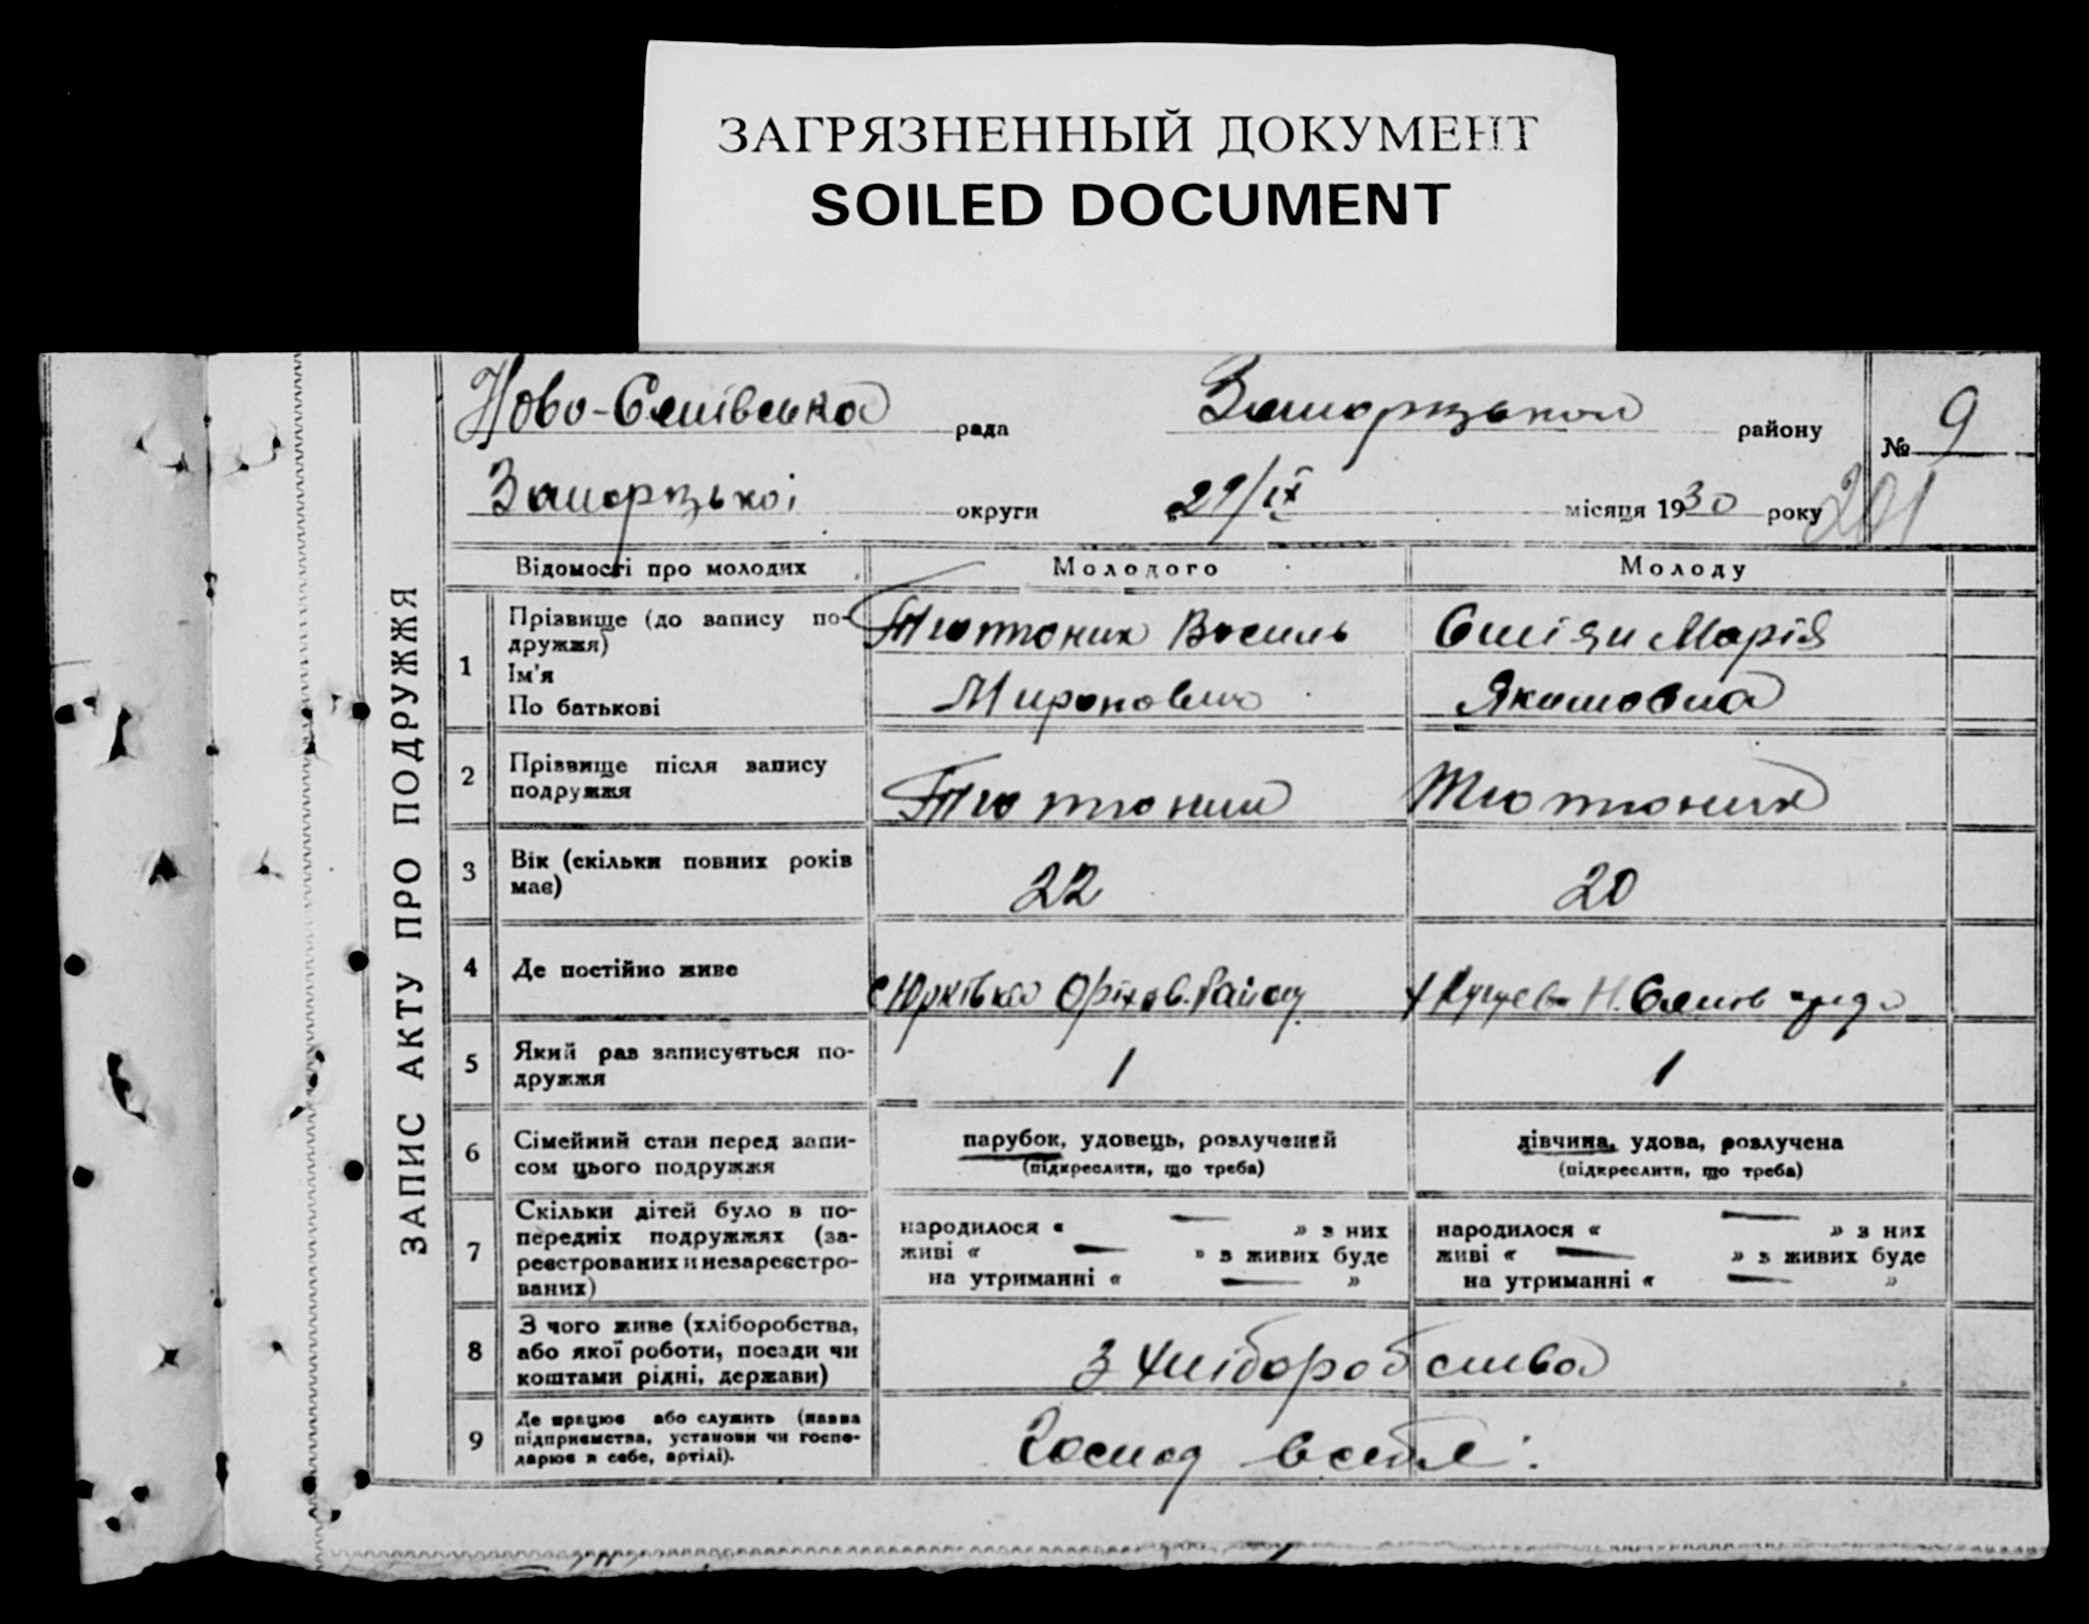 ЗАГРЯЗНЕННЫЙ ДОКУМЕНТ
SOILED DOCUMENT
рада району № 9
округи 29/IX місяця 1930 року 201
ЗАПИС АКТУ ПРО ПОДРУЖЖЯ
Відомості про молодих Молодого Молоду
1 Прізвище (до запису по-
дружжя)
Ім'я
По батькові
Тютюник Василь
Миронович
Марія
Якимовна
2 Прізвище після запису
подружжя
Тютюник
Тютюник
3 Вік (скільки повних років
має)
22
20
4 Де постійно живе
с Юрківка Оріхов. Району
5 Який раз записується по-
дружжя
1
1
6 Сімейний стан перед запи-
сом цього подружжя
парубок, удовець, розлучений
(підкреслити, що треба)
дівчина, удова, розлучена
(підкреслити, що треба)
7 Скільки дітей було в по-
передніх подружжях (за-
реєстрованих и незареєстро-
ваних)
народилося « — » з них
живі « — » з живих буде
на утриманні « — »
народилося « — » з них
живі « — » з живих буде
на утриманні « — »
8 З чого живе (хліборобства,
або якої роботи, посади чи
коштами рідні, держави)
З хліборобства
9 Де працює або служить (назва
підприємства, установи чи госпо-
дарює в себе, артілі).
Господ в себе.